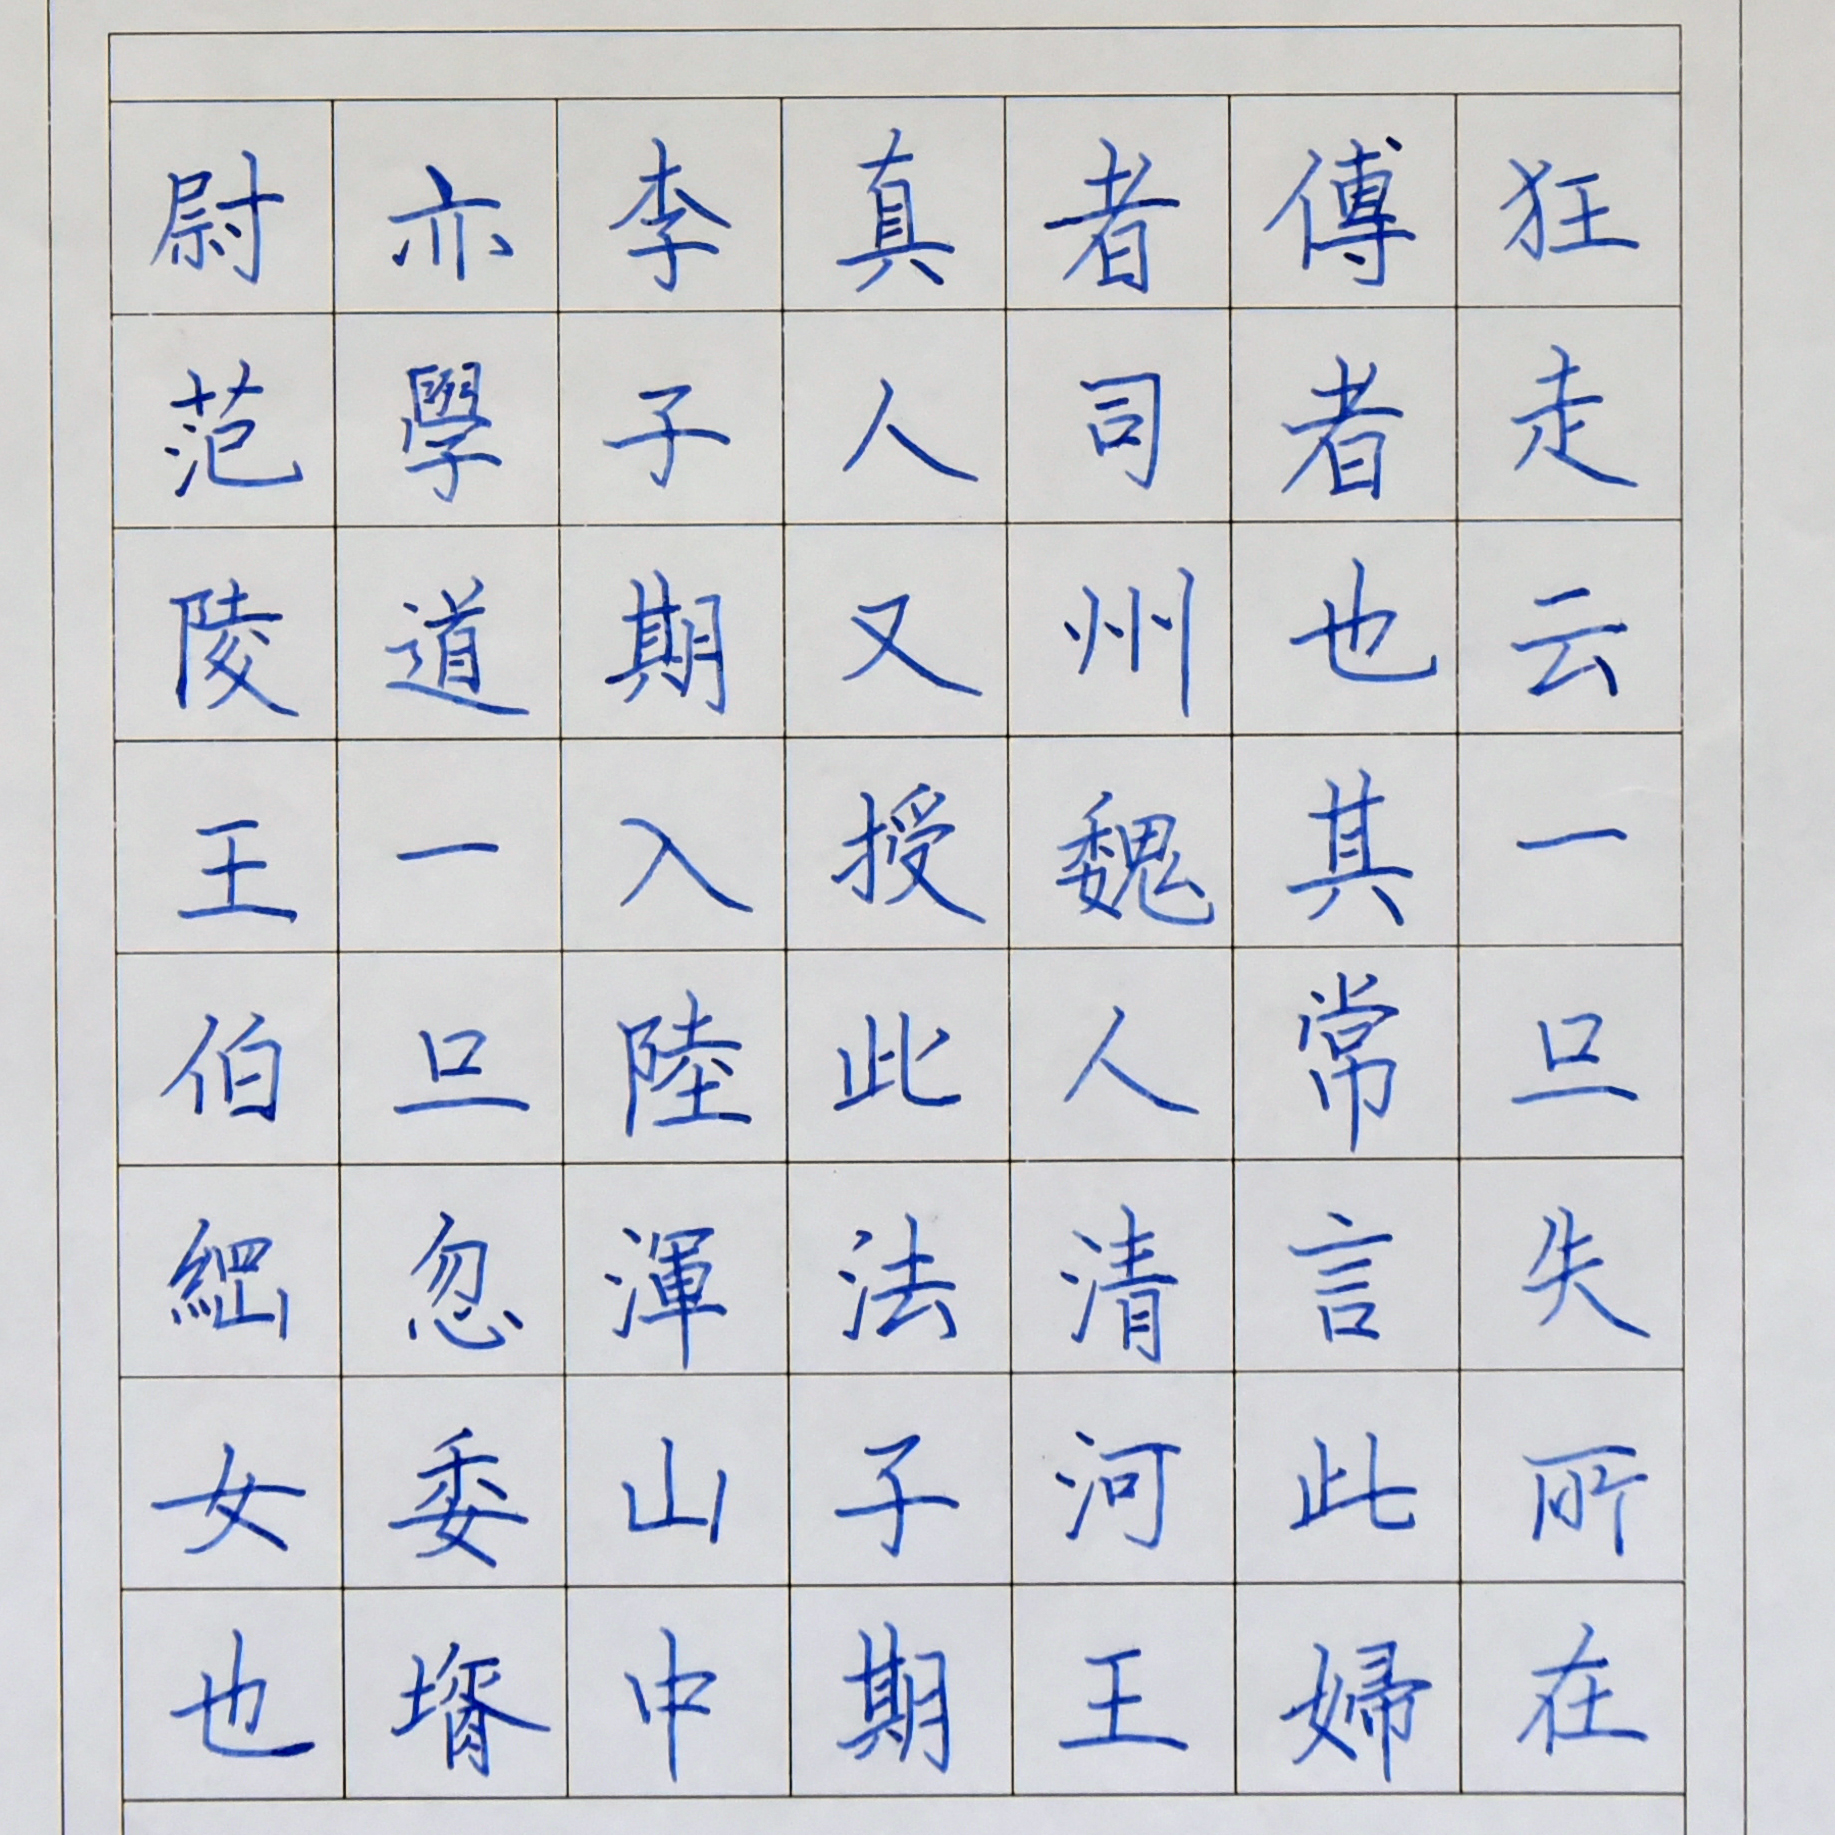 狂走云一旦失所在
傅者也其常言此婦
者司州魏人清河王
真人又授此法子期
李子期入陸渾山中
亦學道一旦忽委壻
尉范陵王伯綱女也